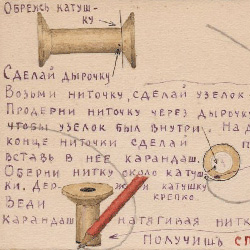 ОБРЕЖЬ КАТУШ-
КУ
СДЕЛАЙ ДЫРОЧКУ
ВОЗЬМИ НИТОЧКУ, СДЕЛАЙ УЗЕЛОК
ПРОДЕРНИ НИТОЧКУ ЧЕРЕЗ ДЫРОЧКУ
ЧТОБЫ УЗЕЛОК БЫЛ ВНУТРИ. НА Д
КОНЦЕ НИТОЧКИ СДЕЛАЙ П
ВСТАВЬ В НЕЕ КАРАНДАШ.
ОБЕРНИ НИТКУ ОКОЛО КАТУШ
КИ. ДЕР ЖИ КАТУШКУ
КРЕПКО.
ВЕДИ
КАРАНДАШ НАТЯГИВАЯ НИТК
ПОЛУЧИШЬ СП